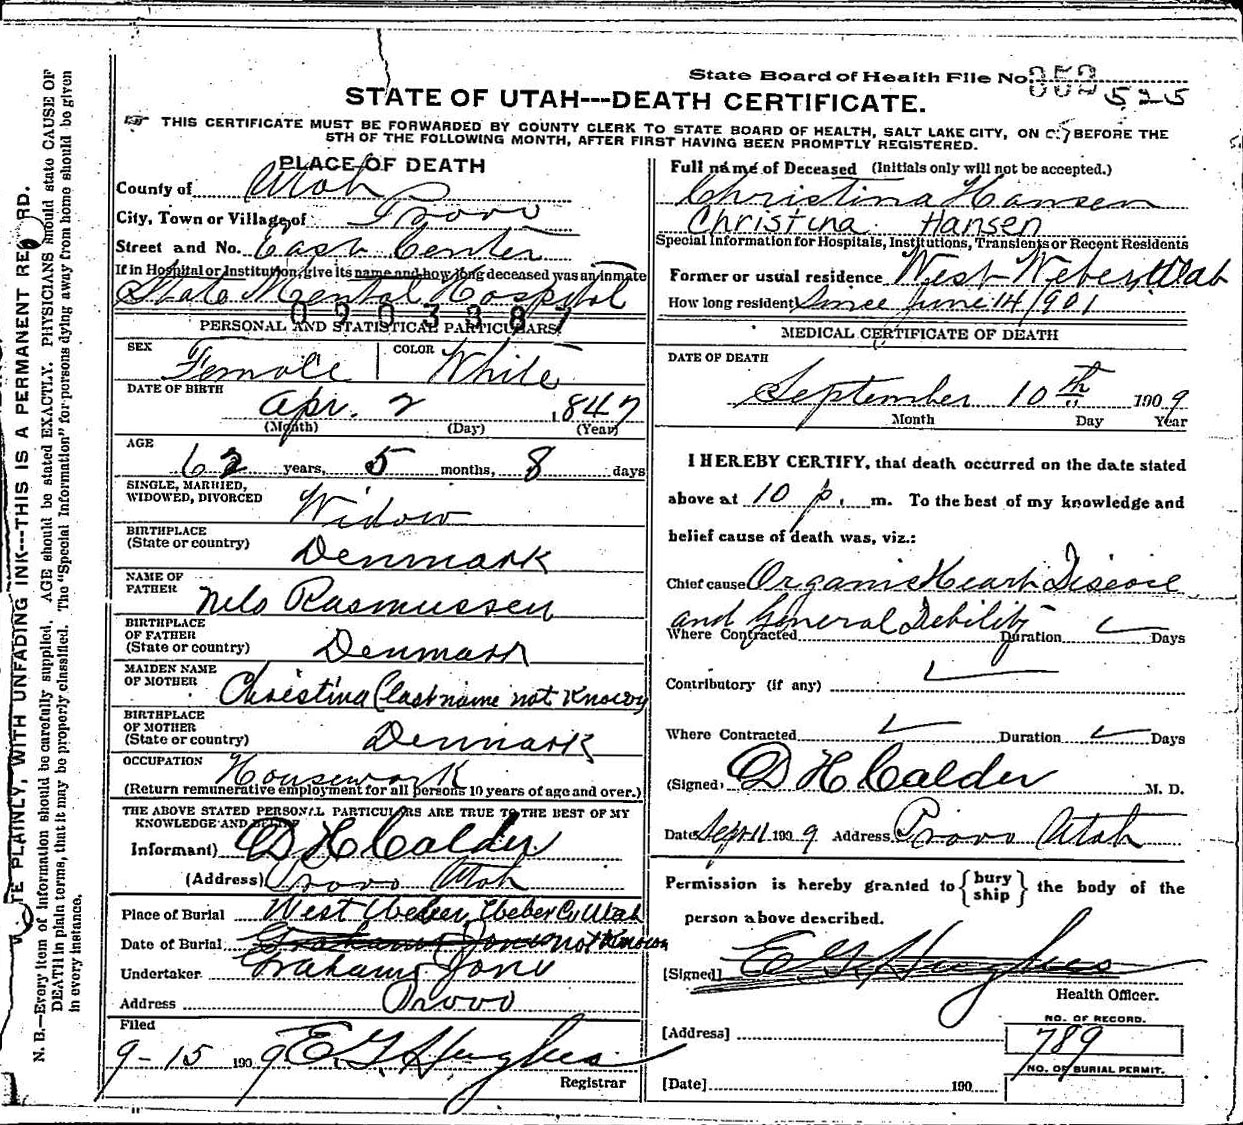 State Board of Health File No. 525
STATE OF UTAH---DEATH CERTIFICATE.
THIS CERTIFICATE MUST BE FORWARDED BY COUNTY CLERK TO STATE BOARD OF HEALTH, SALT LAKE CITY, ON OR BEFORE THE
5TH OF THE FOLLOWING MONTH, AFTER FIRST HAVING BEEN PROMPTLY REGISTERED.
PLACE OF DEATH
County of Utah
City, Town or Village of Provo
Street and No. East Center
If in Hospital or Institution, give its name and how long deceased was an inmate
State Mental Hospital
PERSONAL AND STATISTICAL PARTICULARS
SEX Female COLOR White
DATE OF BIRTH
Apr. 2 1847
(Month) (Day) (Year)
AGE
62 years, 5 months, 8 days
SINGLE, MARRIED,
WIDOWED, DIVORCED Widow
BIRTHPLACE
(State or country) Denmark
NAME OF
FATHER Nels Rasmussen
BIRTHPLACE
OF FATHER
(State or country) Denmark
MAIDEN NAME
OF MOTHER Christina (last name not known)
BIRTHPLACE
OF MOTHER
(State or country) Denmark
OCCUPATION Housework
(Return remunerative employment for all persons 10 years of age and over.)
THE ABOVE STATED PERSONAL PARTICULARS ARE TRUE TO THE BEST OF MY
KNOWLEDGE AND BELIEF
Informant) D H Calder
(Address) Provo Utah
Place of Burial West Weber, Weber Co Utah
Date of Burial not known
Undertaker Graham Jone
Address Provo
Filed
9-15 1909 E. G. Hughes
Registrar
Full name of Deceased (Initials only will not be accepted.)
Christina Hansen
Christina Hansen
Special Information for Hospitals, Institutions, Transients or Recent Residents
Former or usual residence West Weber Utah
How long resident Since June 14 1901
MEDICAL CERTIFICATE OF DEATH
DATE OF DEATH
September 10th 1909
Month Day Year
I HEREBY CERTIFY, that death occurred on the date stated
above at 10 p. m. To the best of my knowledge and
belief cause of death was, viz.:
Chief cause Organic Heart Disease
and General Debility
Where Contracted Duration Days
Contributory (if any)
Where Contracted Duration Days
(Signed) D H Calder M. D.
Date Sept 11 1909 Address Provo Utah
Permission is hereby granted to {bury ship} the body of the
person above described.
[Signed] E G Hughes
Health Officer.
[Address]
[Date] 190
NO. OF RECORD.
789
NO. OF BURIAL PERMIT.
WRITE PLAINLY, WITH UNFADING INK---THIS IS A PERMANENT RECORD.
N. B.—Every item of information should be carefully supplied. AGE should be stated EXACTLY. PHYSICIANS should state CAUSE OF
DEATH in plain terms, that it may be properly classified. The "Special Information" for persons dying away from home should be given
in every instance.